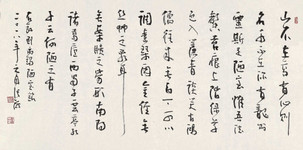 山不在高有仙則
名水不在深有龍則
靈斯是陋室惟吾德
馨苔痕上階綠草
色入簾青談笑有鴻
儒往來無白丁可以
調素琴閱金經無
絲竹之亂耳
無案牘之勞形南陽
諸葛廬西蜀子雲亭孔
子云何陋之有
劉禹錫陋室銘
二〇〇八年